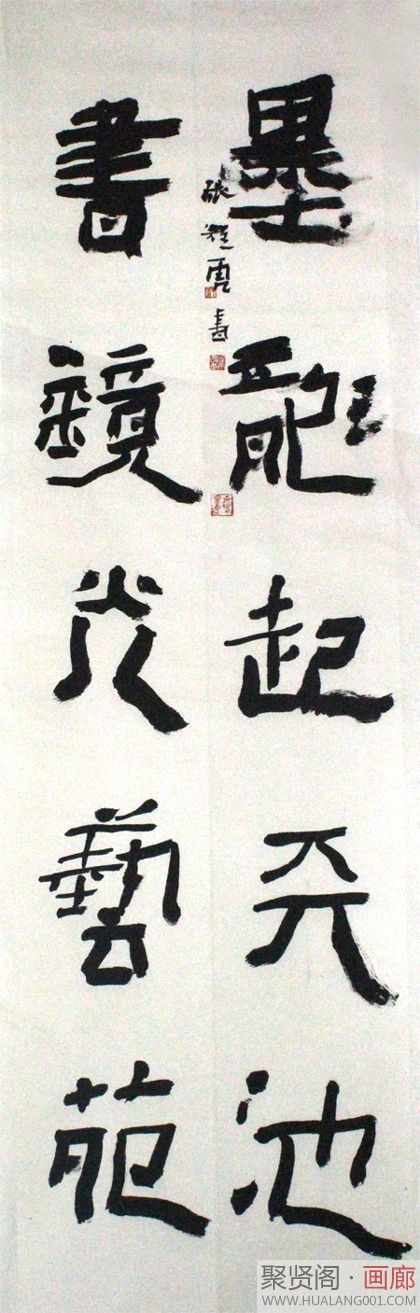 墨龍起天池
張書
書鏡光藝苑
聚贤阁·画廊
WWW.HUALANG001.COM